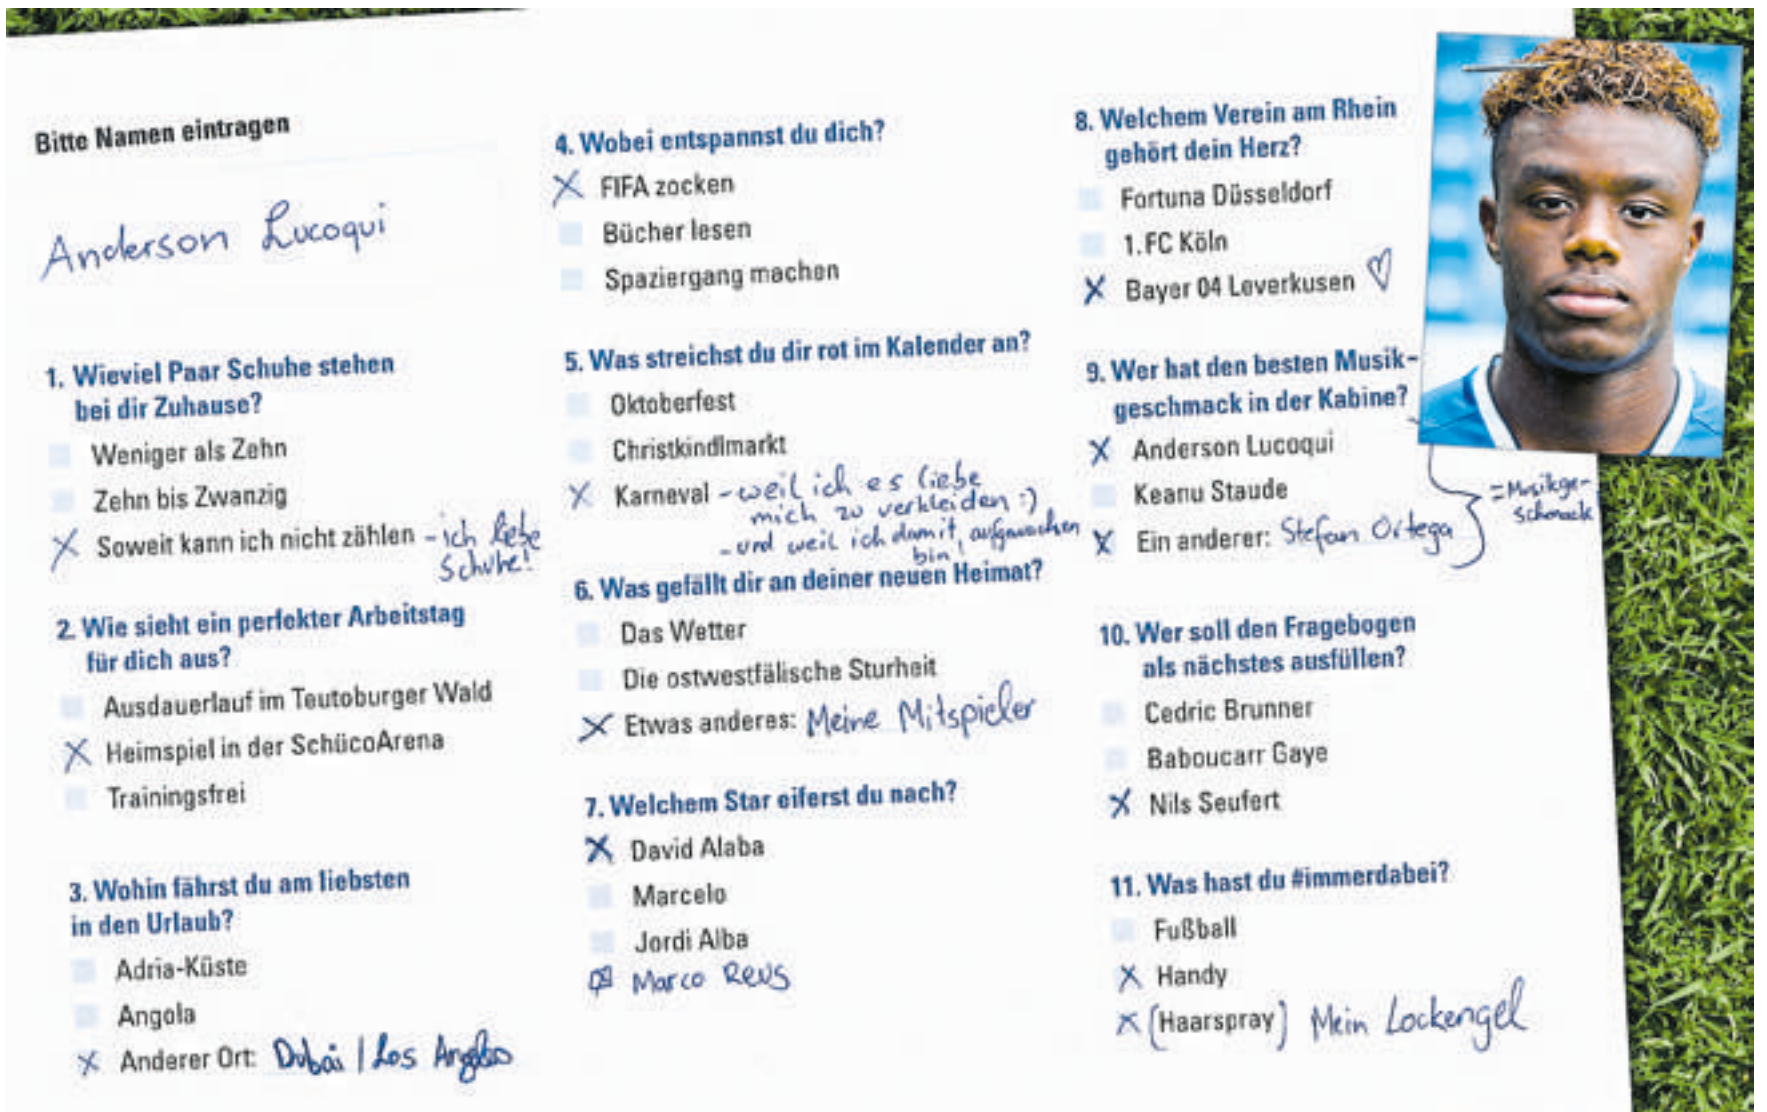 Bitte Namen eintragen
Anderson Lucoqui
1. Wieviel Paar Schuhe stehen
bei dir Zuhause?
Weniger als Zehn
Zehn bis Zwanzig
Soweit kann ich nicht zählen - ich liebe
Schuhe!
2. Wie sieht ein perfekter Arbeitstag
für dich aus?
Ausdauerlauf im Teutoburger Wald
Heimspiel in der SchücoArena
Trainingsfrei
3. Wohin fährst du am liebsten
in den Urlaub?
Adria-Küste
Angola
Anderer Ort: Dubai / Los Angeles
4. Wobei entspannst du dich?
FIFA zocken
Bücher lesen
Spaziergang machen
5. Was streichst du dir rot im Kalender an?
Oktoberfest
Christkindlmarkt
Karneval - weil ich es liebe
mich zu verkleiden :)
- und weil ich damit aufgewachsen
bin!
6. Was gefällt dir an deiner neuen Heimat?
Das Wetter
Die ostwestfälische Sturheit
Etwas anderes: Meine Mitspieler
7. Welchem Star eiferst du nach?
David Alaba
Marcelo
Jordi Alba
Marco Reus
8. Welchem Verein am Rhein
gehört dein Herz?
Fortuna Düsseldorf
1. FC Köln
Bayer 04 Leverkusen ♡
9. Wer hat den besten Musik-
geschmack in der Kabine?
Anderson Lucoqui
Keanu Staude
Ein anderer: Stefan Ortega
= Musikge-
schmack
10. Wer soll den Fragebogen
als nächstes ausfüllen?
Cedric Brunner
Baboucarr Gaye
Nils Seufert
11. Was hast du #immerdabei?
Fußball
Handy
(Haarspray) Mein Lockengel